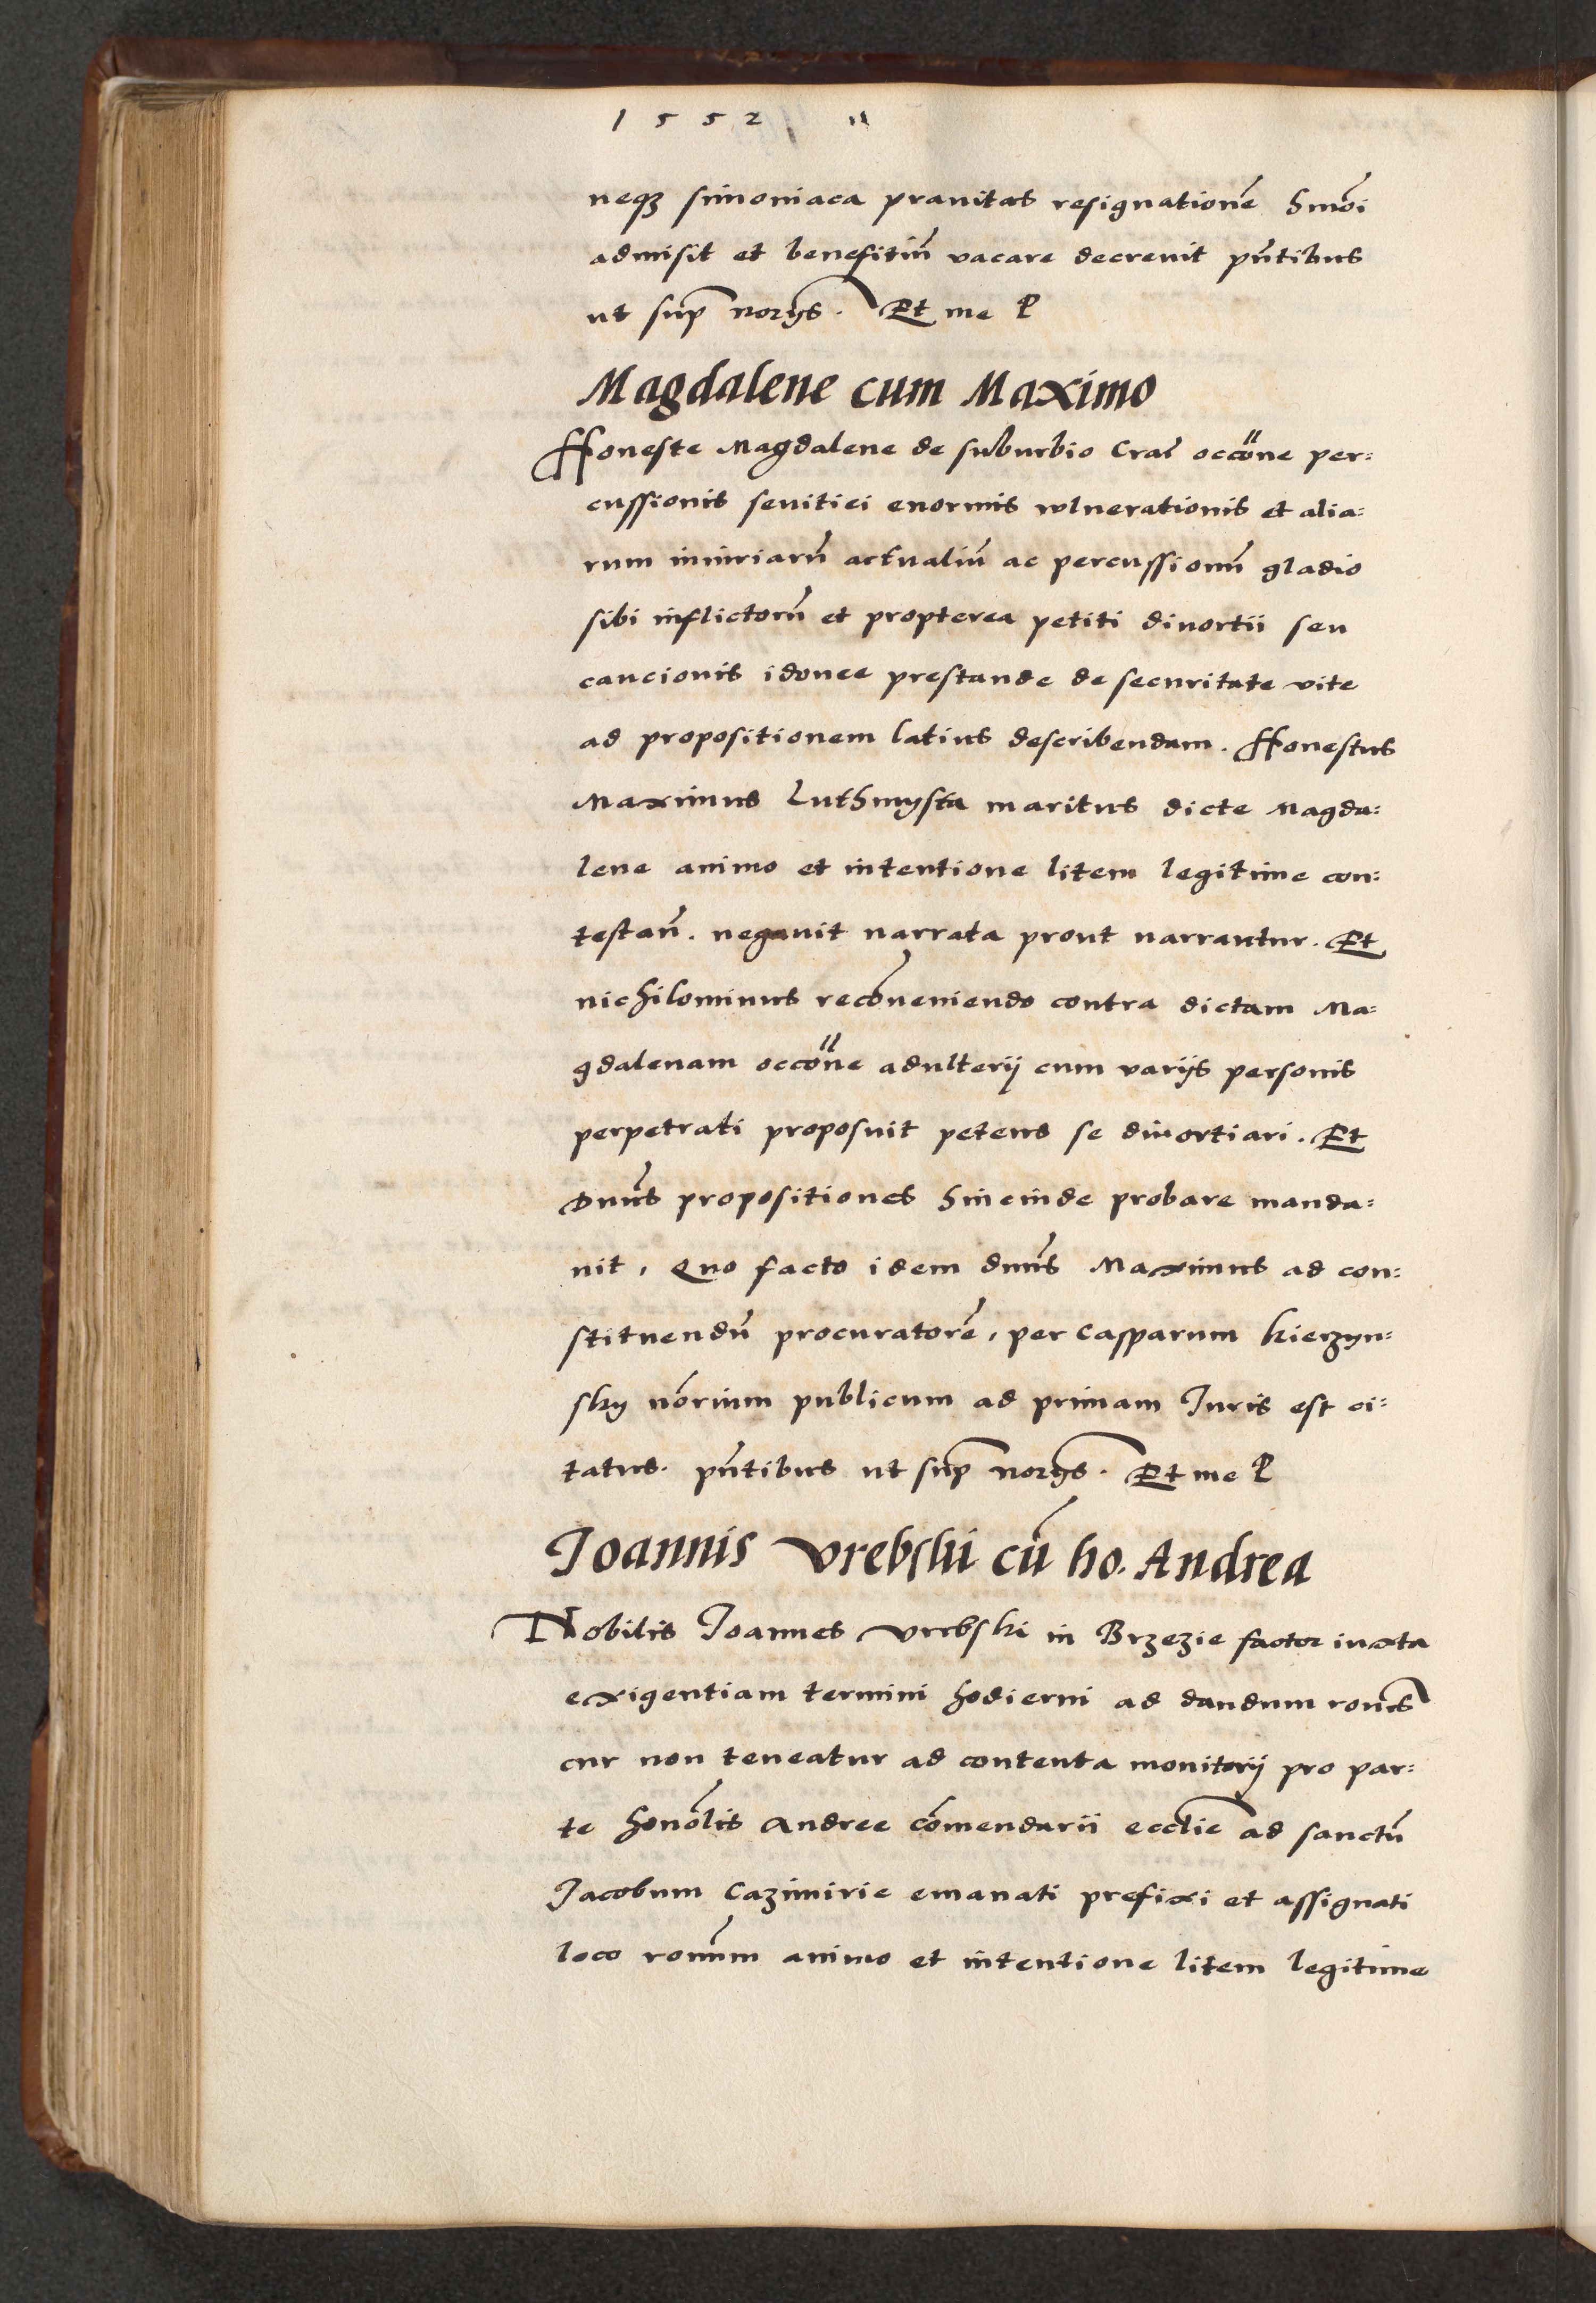 1552
neqz simoniaca pravitas resignationē hmōi
admisit et benefitiū vacare decrevit pñtibus
ut sup norijs. Et me P
Magdalene cum Maximo
Honeste Magdalene de suburbio Crač occõne per=
cussionis sevitiei enormis vulnerationis et alia=
rum iniuriarū actualiū ac percussionū gladio
sibi inflictorū et propterea petiti divortii seu
caucionis idonee prestande de securitate vite
ad propositionem latius describendam. Honestus
Maximus Luthmysta maritus dicte Magda=
lene animo et intentione litem legitime con=
testañ. negavit narrata prout narrantur. Et
nichilominus recōveniendo contra dictam Ma=
gdalenam occõne adulterij cum varijs personis
perpetrati proposuit petens se divortiari. Et
Dnūs propositiones hincinde probare manda=
vit, Quo facto idem dnūs Maximus ad con=
stituendū procuratorē, per Casparum Kierzyn=
sky nōrium publicum ad primam Juris est ci=
tatus. pñtibus ut sup norijs. Et me P
Joannis Vrebski cū ho. Andrea
Nobilis Joannes Vrebski in Brzezie factor iuxta
exigentiam termini hodierni ad dandum ronēs
cur non teneatur ad contenta monitorij pro par=
te honōlis Andree cōmendarii ecclie ad sanctū
Jacobum Cazimirie emanati prefixi et assignati
loco ronūm animo et intentione litem legitime